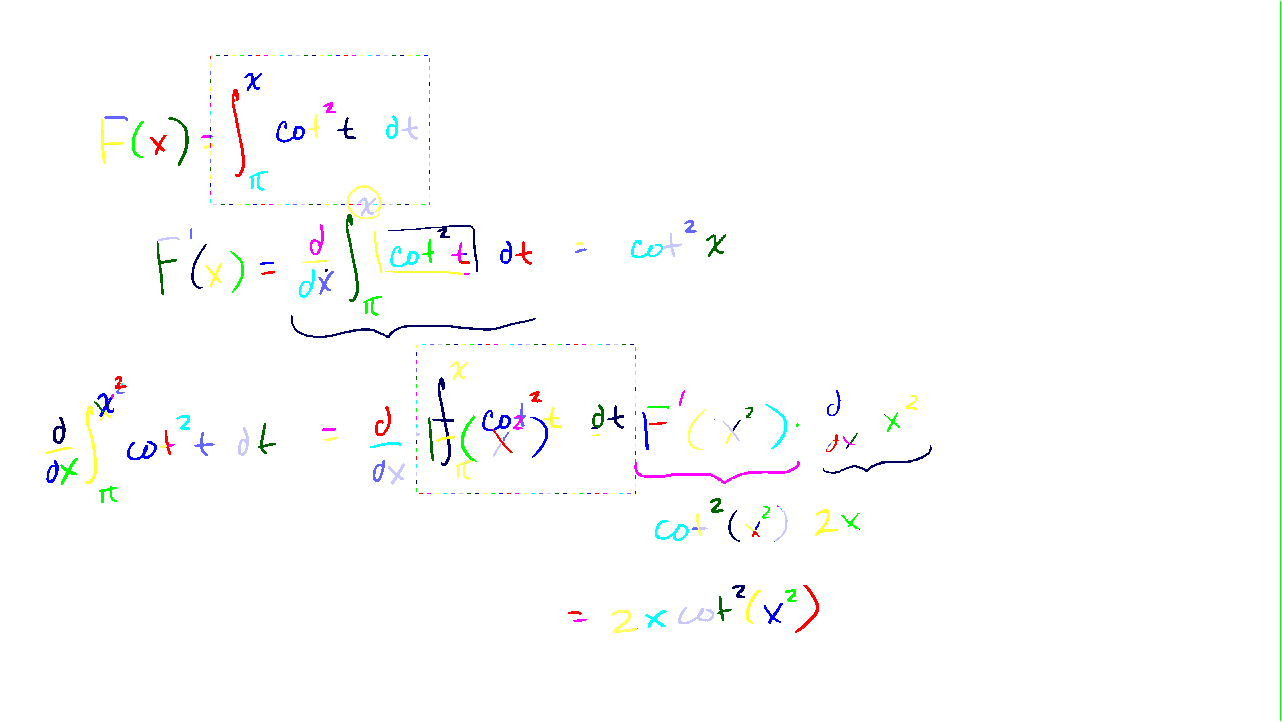 F(x) = ∫_π^x cot² t dt
F'(x) = d/dx ∫_π^x cot² t dt = cot² x
d/dx ∫_π^{x²} cot² t dt = d/dx F(x²) F'(x²) · d/dx x²
∫_π^x cot² t dt
cot²(x²) 2x
= 2x cot²(x²)